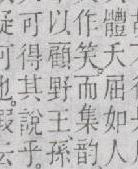 體夭屈如人
作笑。而集韵
以顧野王、孫
可得其說乎。
疑可也。